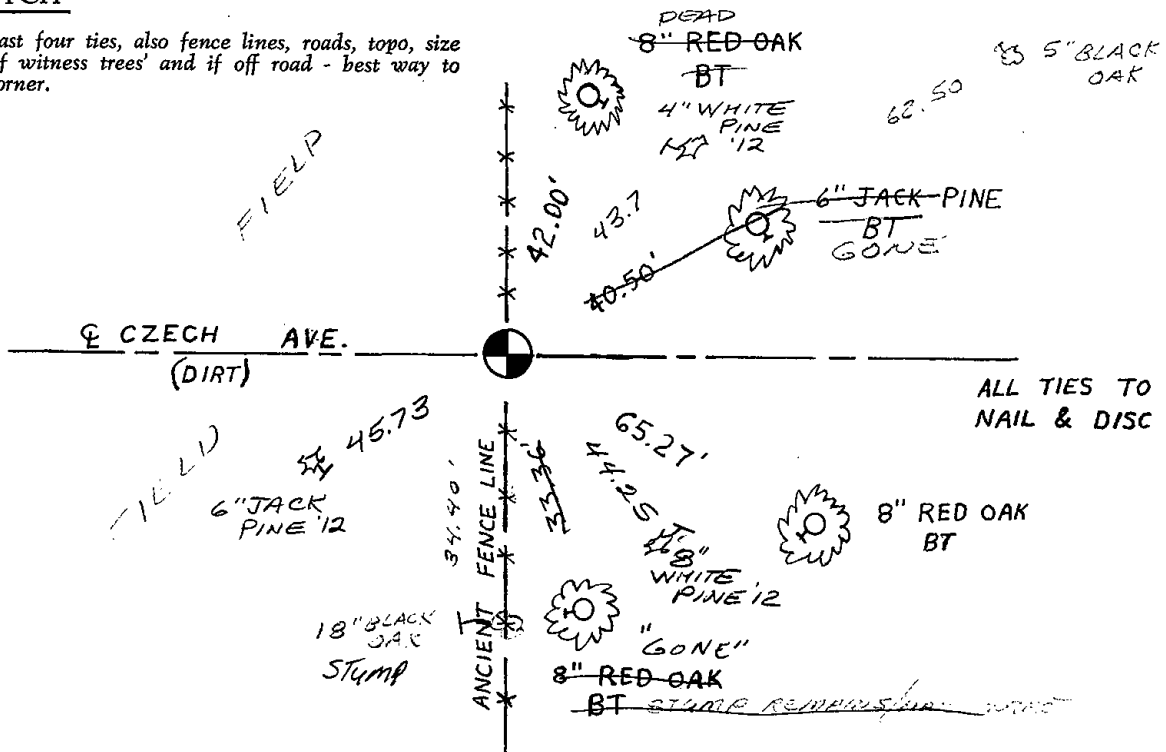 ast four ties, also fence lines, roads, topo, size
f witness trees' and if off road - best way to
orner.
DEAD
8" RED OAK
BT
4" WHITE
PINE
'12
62.50
5" BLACK
OAK
FIELD
42.00'
43.7
40.50'
6" JACK PINE
BT
GONE
℄ CZECH AVE.
(DIRT)
ALL TIES TO
NAIL & DISC
FIELD
45.73
6" JACK
PINE '12
34.40'
ANCIENT FENCE LINE
33.36'
65.27'
44.25
8"
WHITE
PINE '12
8" RED OAK
BT
18" BLACK
OAK
STUMP
"GONE"
8" RED OAK
BT STUMP REMAINS